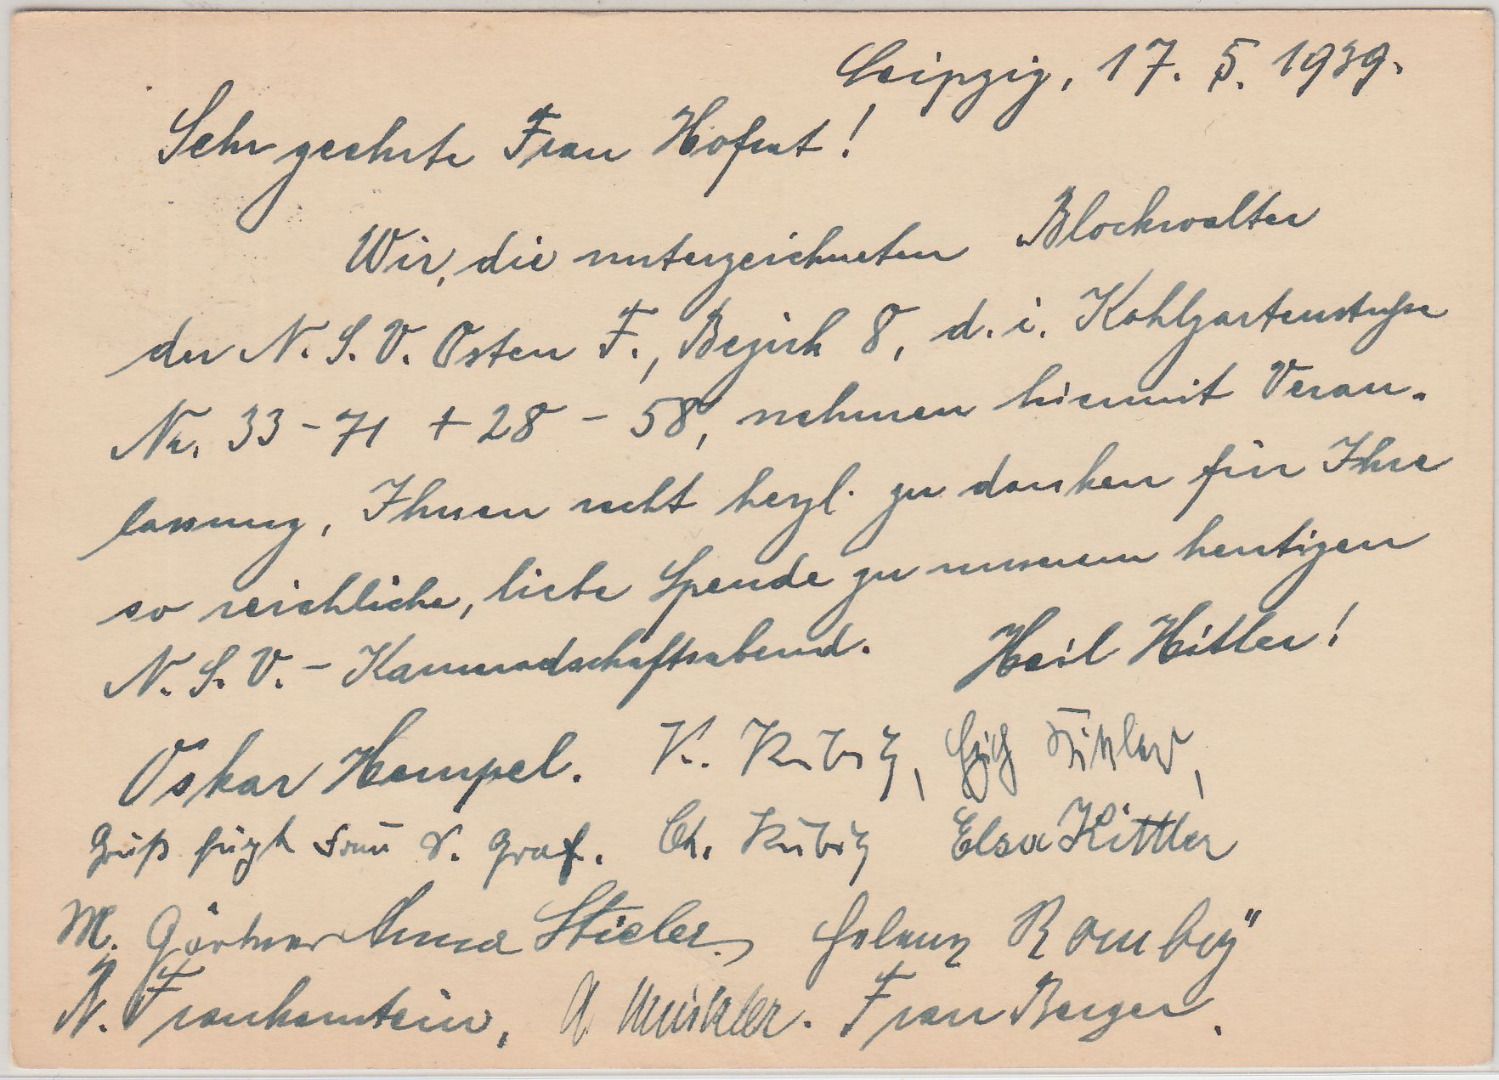 Leipzig, 17. 5. 1939.
Sehr geehrte Frau Hofrat!
Wir, die unterzeichneten Blockwalter
der N. S. V. Osten F., Bezirk 8, d. i. Kohlgartenstraße
Nr. 33 - 71 + 28 - 58, nehmen hiermit Veran-
lassung, Ihnen recht herzl. zu danken für Ihre
so reichliche, liebe Spende zu unserem heutigen
N. S. V. - Kameradschaftsabend. Heil Hitler!
Oskar Hempel. K. Kubitz, Erich Kittler,
Gruß fügt Frau V. Graf. Ch. Kubitz Elsa Kittler
M. Gärtner Anna Stieler, Helene
N. Frankenstein, A Winkler. Frau Berger.